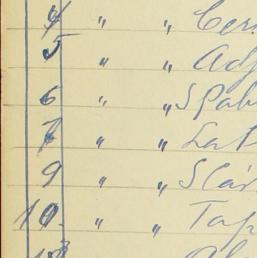 4 " " Cer
5 " " Adj
6 " " Spal
7 " " Lat
9 " " Slav
10. " " Tap